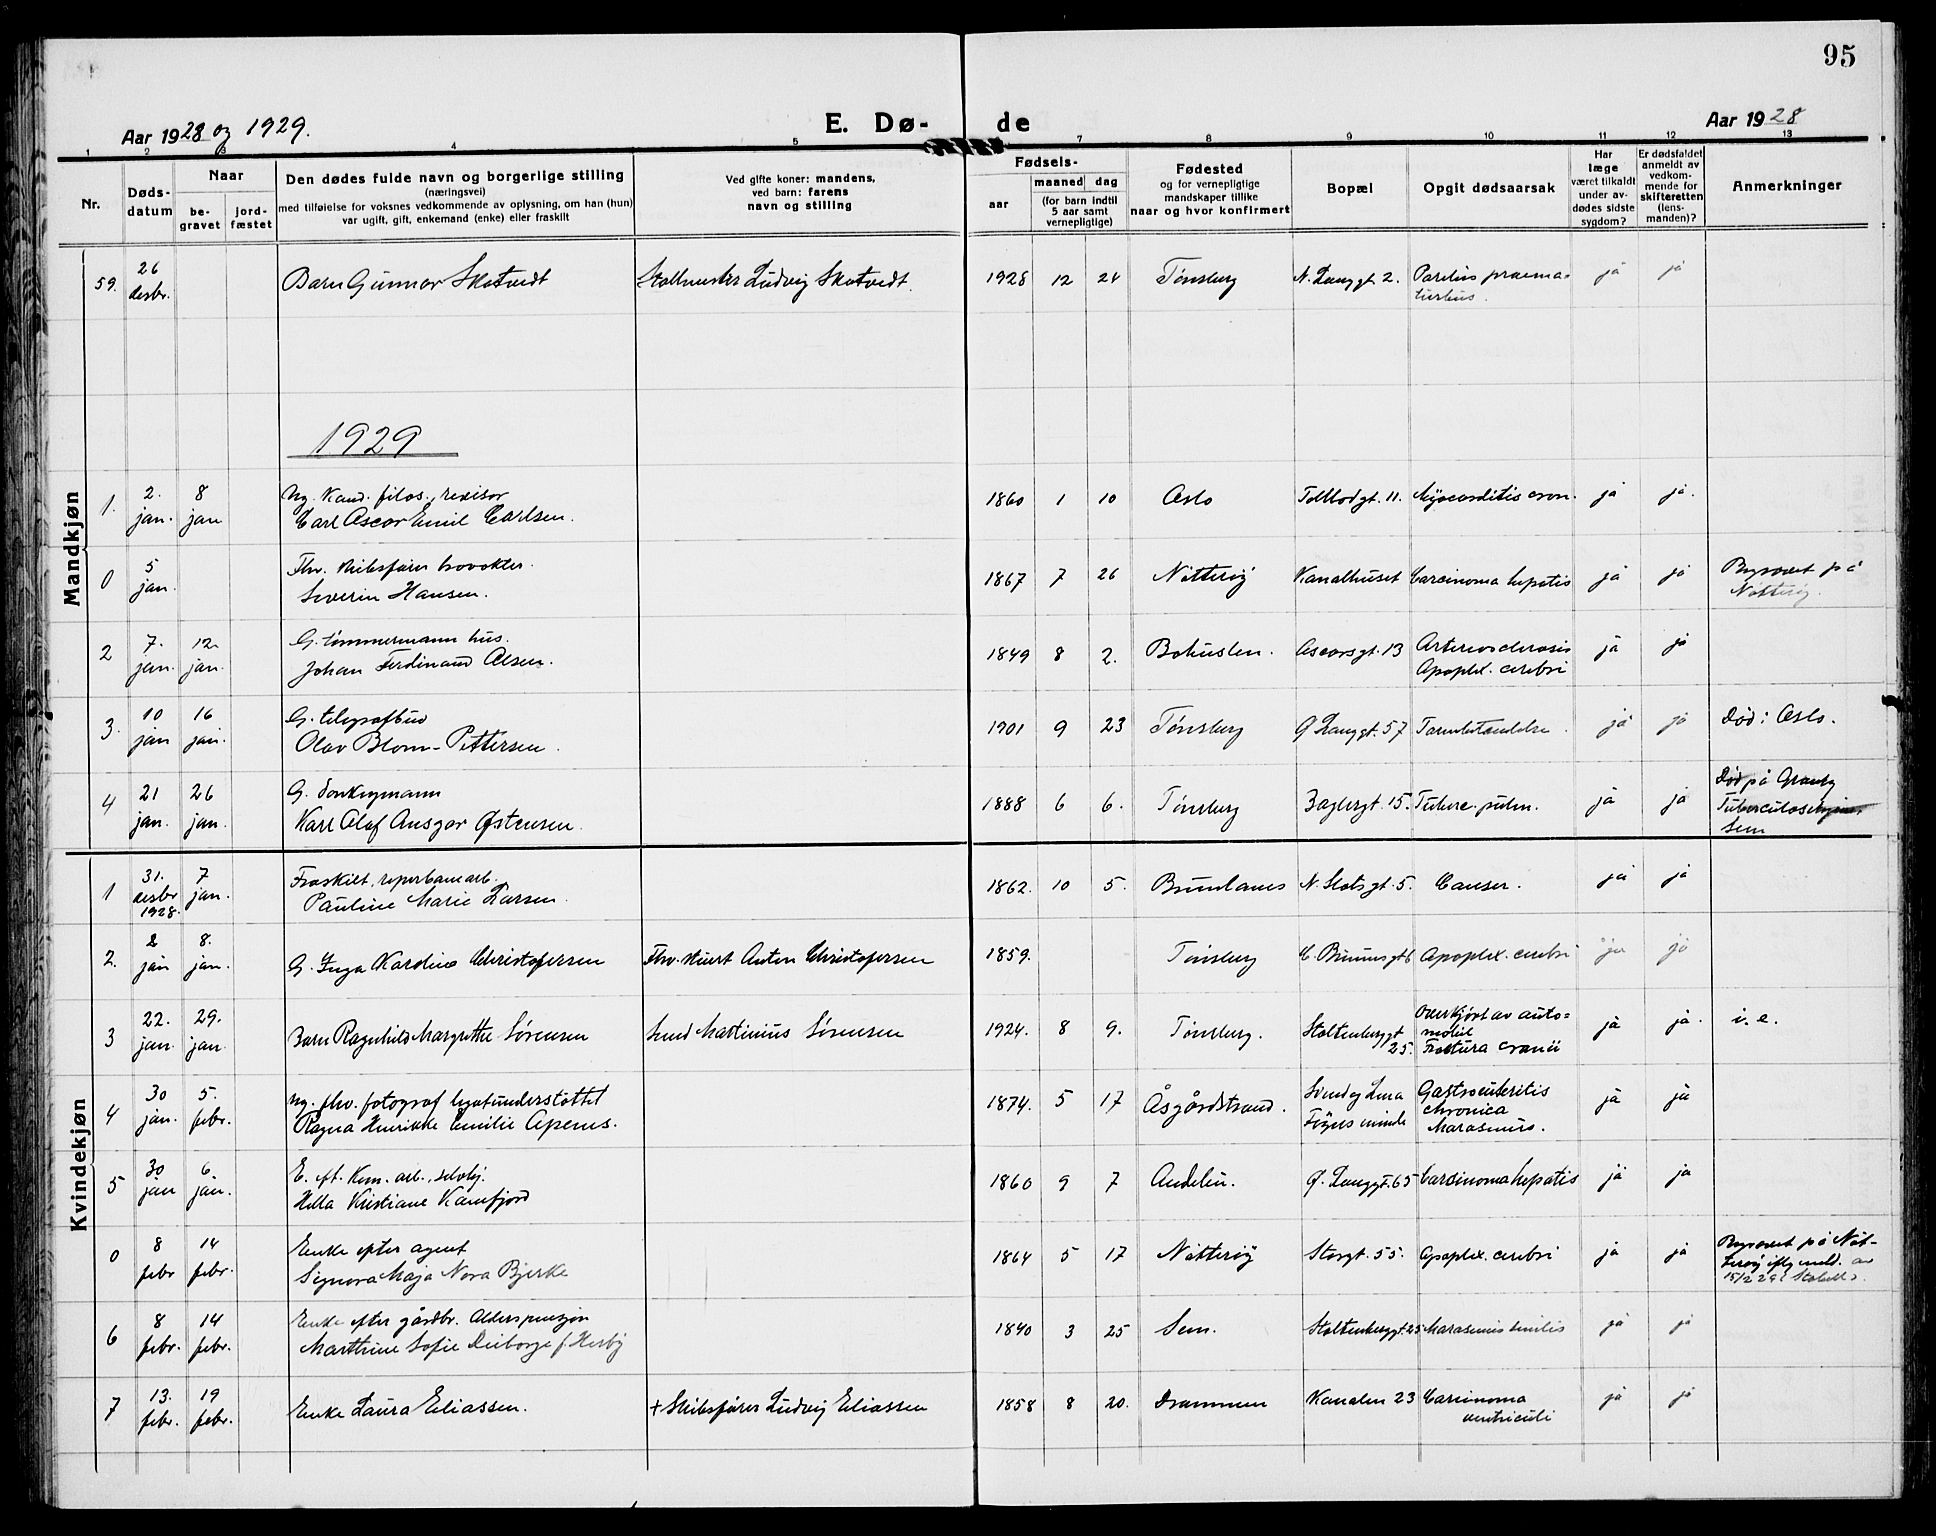 95
Aar 1928 og 1929.
E. Dø-
de
Aar 1928
1 2 3 4 5 7 8 9 10 11 12 13
Nr.
Døds-
datum
Naar
be-
gravet
jord-
fæstet
Den dødes fulde navn og borgerlige stilling
(næringsvei)
med tilføielse for voksnes vedkommende av oplysning, om han (hun)
var ugift, gift, enkemand (enke) eller fraskilt
Ved gifte koner: mandens,
ved barn: farens
navn og stilling
Fødsels-
aar
maaned dag
(for barn indtil
5 aar samt
vernepligtige)
Fødested
og for vernepligtige
mandskaper tillike
naar og hvor konfirmert
Bopæl
Opgit dødsaarsak
Har
læge
været tilkaldt
under av-
dødes sidste
sygdom?
Er dødsfaldet
anmeldt av
vedkom-
mende for
skifteretten
(lens-
manden)?
Anmerkninger
Mandkjøn
59. 26 desbr. Barn Gunnar Skotvedt Ludvig Skotvedt. 1928 12 24 Tønsberg N. Langgt. 2. Partus praema-
turus. ja ja
1929
1. 2. jan. 8 jan Ug. Kand. filos., revisor
Carl Oscar Emil Carlsen. 1860 1 10 Oslo Tollbodgt. 11. Myocarditis cron. ja ja.
0 5 jan. Fhv. skibsfører
Severin Hansen. 1867 7 26 Nøtterøy Kanalhuset Carcinoma hepatis ja ja Begravet på
Nøtterøy.
2 7. jan. 12. jan. G. tømmermann
Johan Ferdinand Olsen. 1849 8 2. Bohuslen. Oscarsgt. 13 Arteriosclerosis
Apoplex. cerebri ja ja
3. 10 jan 16 jan. G. telegrafbud
Olav Blom-Pettersen. 1901 9 23 Tønsberg Ø Langgt. 57 Tarmbetændelse. ja ja Død i Oslo.
4 21 jan. 26 jan. G. donkeymann
Karl Olaf Ansgar Østensen. 1888 6 6. Tønsberg 15. Tuberc. pulm. ja ja Død på Granly
Sem
Kvindekjøn
1 31. desbr 1928. 7 jan. Fraskilt, reperbanearb.
Pauline Marie Larsen. 1862. 10 5. Brunlanes N. Slotsgt. 5. Canser. ja ja
2. 2 jan 8. jan. G. Inga Karoline Christofersen Fhv. Anton Christofersen 1859. Tønsberg Apoplex. cerebri ja ja
3 22. jan. 29. jan. Barn Ragnhild Margrethe Sørensen Smed Martinius Sørensen 1924. 8 9. Tønsberg. Stoltenberggt
25. Overkjørt av auto-
mobil
Fractura cranii ja ja. i. e.
4 30 jan. 5. febr. Ug. fhv. fotograf legatunderstøttet
Ragna Henrikke Emilie Apenes. 1874. 5 17 Åsgårdstrand. Svend og Lina
Føyns minde Gastroenteritis
chronica
Marasmus. ja ja
5 30 jan 6. jan. E. eft. Kom. arb., selvhj.
Kristiane Kamfjord 1860 9 7 Andebu. Ø. Langgt. 65 Carcinoma hepatis ja ja
0 8 febr 14 febr. Enke efter agent
Signora Maja Nora Bjerke 1864 5 17 Nøtterøy Storgt. 55. Apoplex. cerebri ja ja Begravet på Nøt-
terøy iflg meld. av
15/2 29
6 8 febr. 14 febr. Enke efter gårdbr. Alderspensjon
Marthine Sofie 1840 3 25 Sem. Stoltenberggt. 25 Marasmus senilis ja ja
7 13. febr. 19 febr. Enke Laura Eliassen. + Skibsfører Ludvig Eliassen 1858 8 20. Drammen Kanalen 23 Carcinoma
ventriculi ja ja